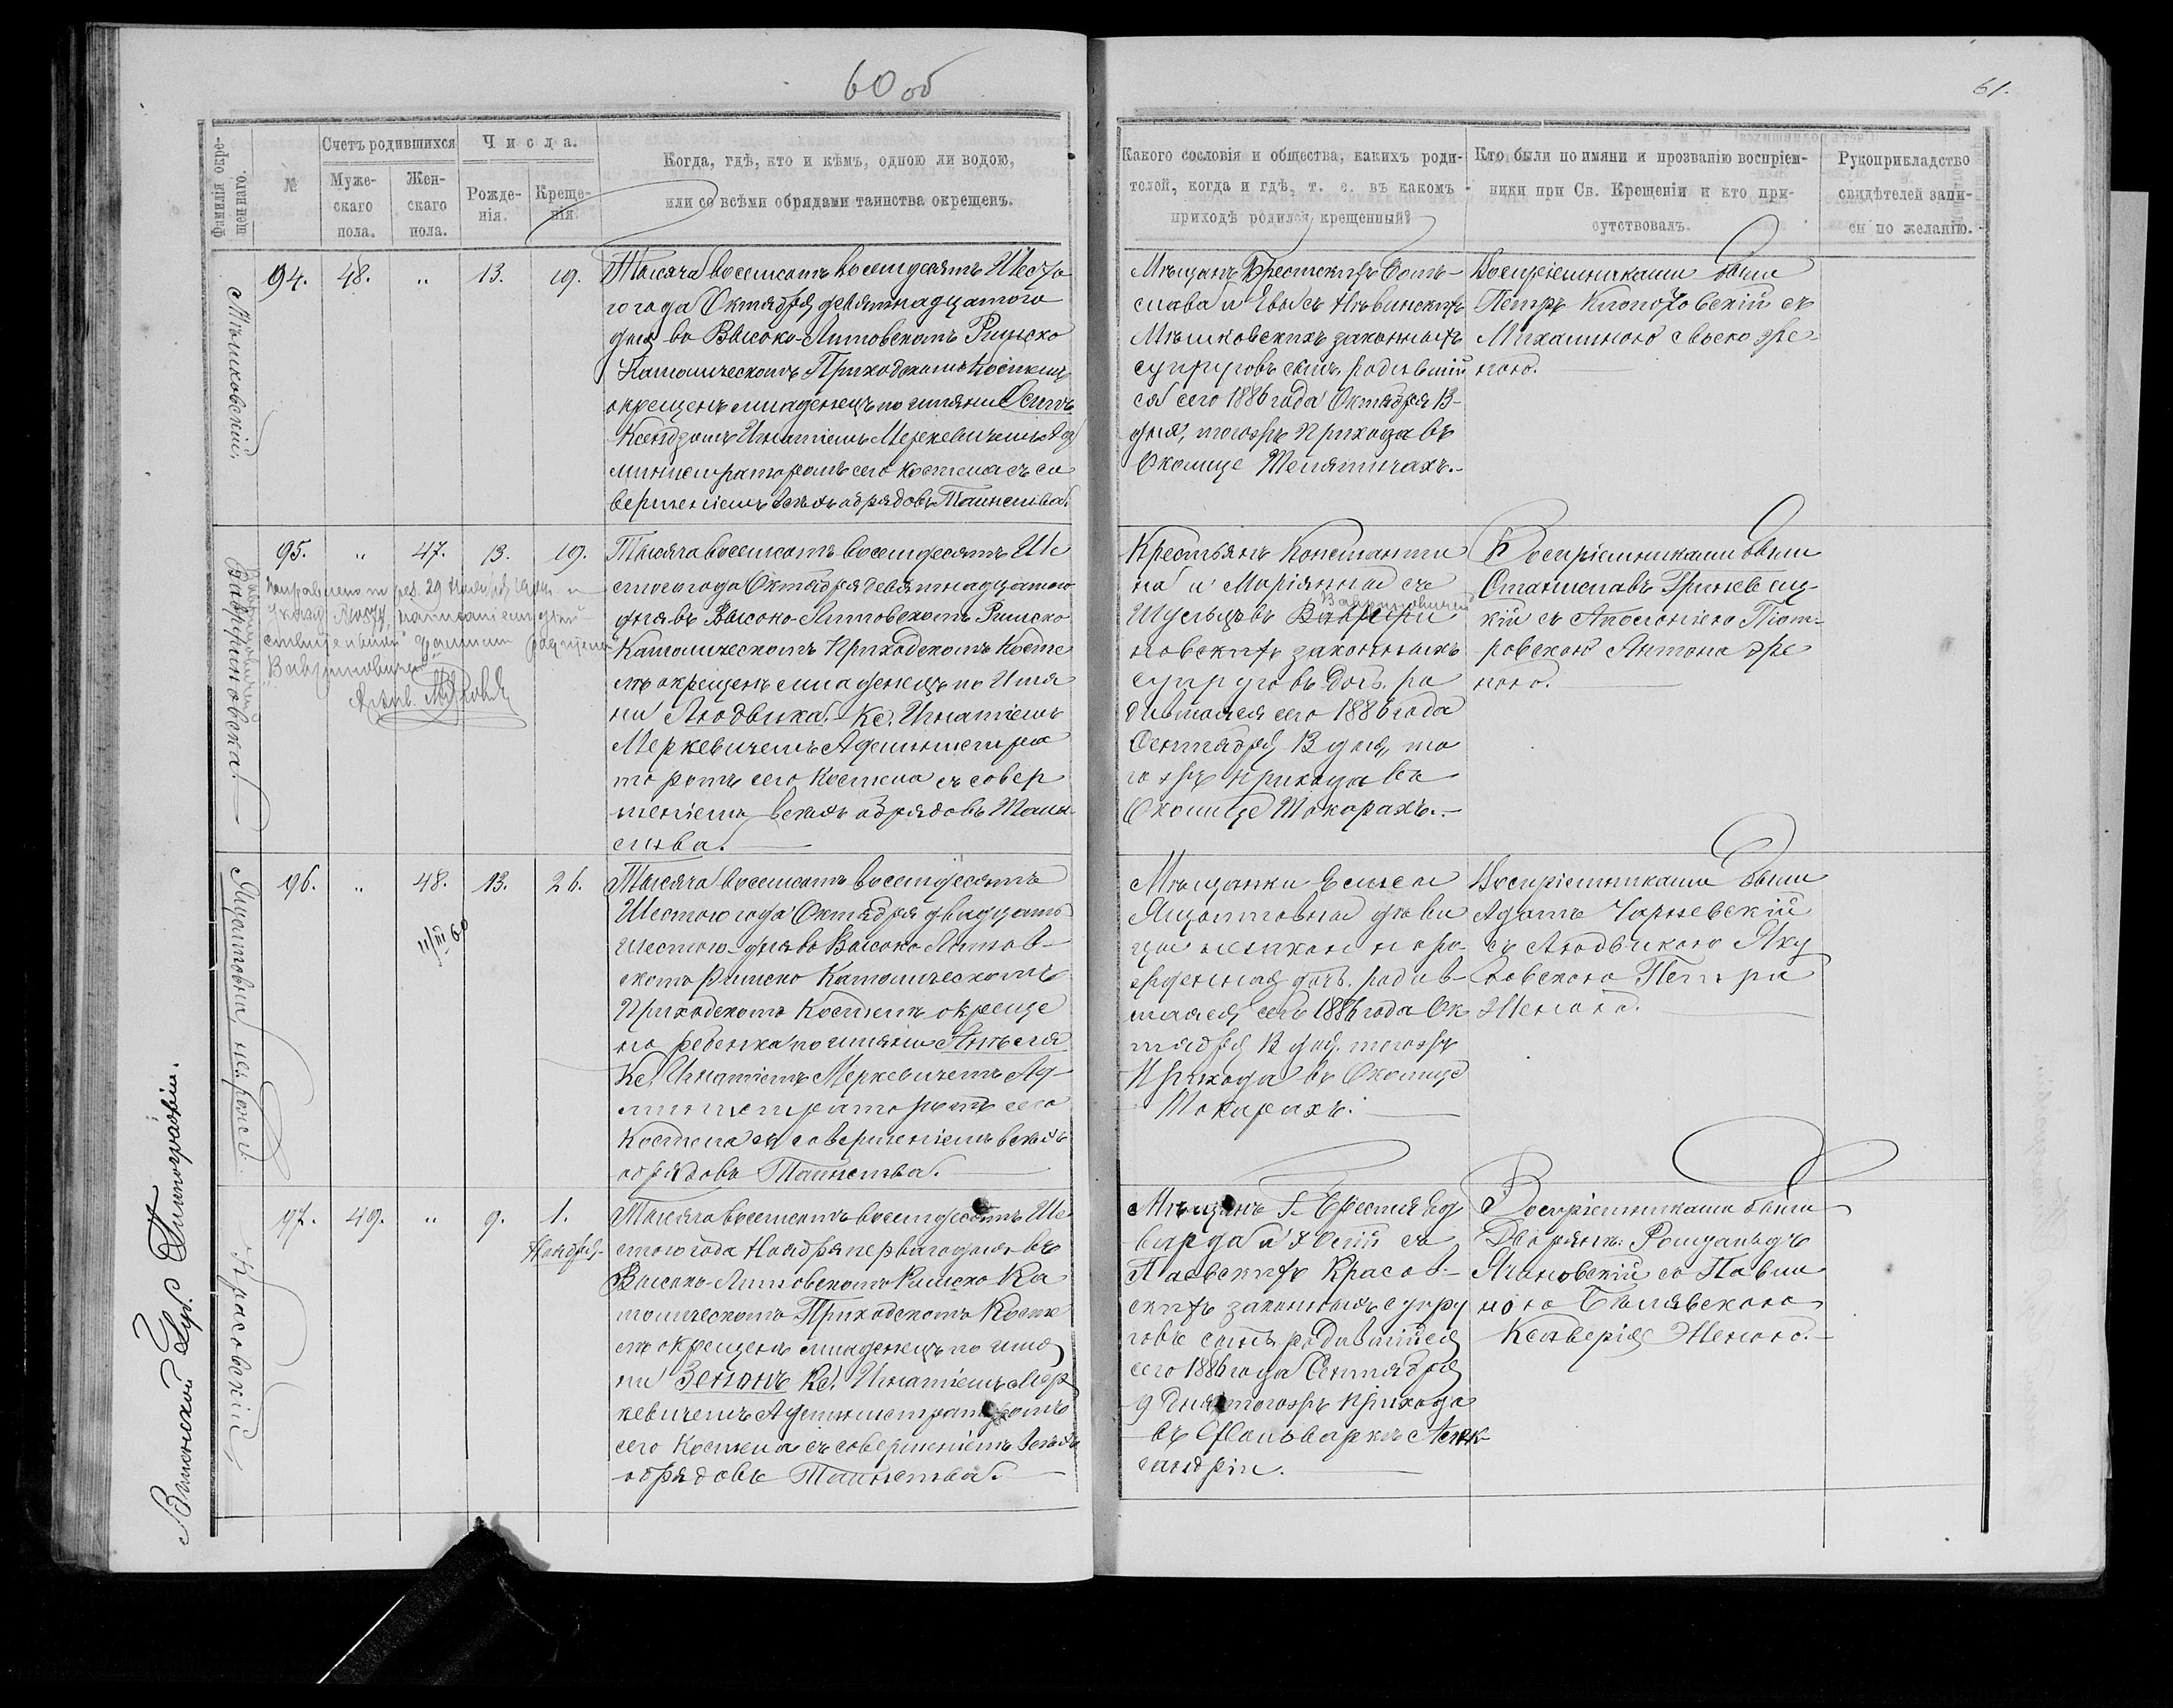 60 об
61.
Фамилія окре-
щеннаго.
№
Счетъ родившихся
Муже-
скаго
пола.
Жен-
скаго
пола.
Числа.
Рожде-
нія.
Креще-
нія.
Когда, гдѣ, кто и кѣмъ, одною ли водою,
или со всѣми обрядами таинства окрещенъ.
Какого сословія и общества, какихъ роди-
телей, когда и гдѣ, т. е. въ какомъ
приходѣ родился крещенный?
Кто были по имяни и прозванію воспріем-
ники при Св. Крещеніи и кто при-
сутствовалъ.
Рукоприкладство
свидѣтелей запи-
си по желанію.
Мѣшковскій.
94. 48. „ 13. 19.
Тысяча восемсотъ восемдесятъ Шеста
го года Октября девятнадцатого
дня во Высоко-Литовскомъ Римско
Католическомъ Приходскомъ Костелѣ
окрещенъ младенецъ по имяни Осипъ
Ксендзомъ Игнатіемъ Меркевичемъ Ад
министраторомъ сего Костела съ со
вершеніемъ всѣхъ обрядовъ Таинства.
Мѣщанъ Брестскихъ Боле-
слава и Евы съ
Мѣшковскихъ законныхъ
супруговъ сынъ, родившій
ся сего 1886 года Октября 13-
дня, тогожъ прихода въ
Околице Телятичахъ.-
Воспріемниками были
Петръ Клопотовскій съ
Михалиною
ною.
Вавринювска.
95. „ 47. 13. 19.
Исправлено 29 Ноября
Указу
Вавринювичей
Тысяча восемсотъ восемдесятъ Ше
стого года Октября девятнадцатого
дня въ Высоко-Литовскомъ Римско
Католическомъ Приходскомъ Косте
лѣ окрещенъ младенецъ по Имя
ни Людвика. Кс. Игнатіемъ
Меркевичемъ Администра
торомъ сего Костела съ совер
шеніемъ всѣхъ обрядовъ Таин-
ства.
Крестьянъ Константи
на и Маріянны съ
Вавринювичей
Шульцовъ
новскихъ законныхъ
супруговъ дочь, ро
дившаяся сего 1886 года
Октября 13 дня, то
гожъ прихода въ
Околице Токарахъ.-
Воспріемниками были
Станиславъ Гриневиц-
кій съ Аполоніею Піот-
ровскою Антона же
ною.
Яцолтовны, нез. рожд.
96. „ 48. 13. 26.
11/III 60
Тысяча восемсотъ восемдесятъ
Шестого года Октября двадцать
шестого дня во Высоко Литов-
скомъ Римско Католическомъ
Приходскомъ Костелѣ окреще
но ребенка по имяни Анѣеля
Кс. Игнатіемъ Меркевичемъ Ад-
министраторомъ сего
Костела съ совершеніемъ всѣхъ
обрядовъ Таинства.
Мѣщанки
Яцолтовны дѣви
цы незакон норо-
жденная дочь, родив-
шаяся сего 1886 года Ок
тября 13 дня, тогожъ
Прихода въ Околице
Токарахъ.
Воспріемниками были
Адамъ Чарневскій
съ Людвикою Яку
бовскою Петра
Женою.
Красовскій
97. 49. „ 9. 1.
Ноября.
Тысяча восемсотъ восемдесятъ Ше
стого года Ноября перваго дня въ
Высоко-Литовскомъ Римско Ка
толическомъ Приходскомъ Косте
лѣ окрещенъ младенецъ по имя
ни Зенонъ Кс. Игнатіемъ Мер
кевичемъ Администраторомъ
сего Костела съ совершеніемъ всѣхъ
обрядовъ Таинства.
Мѣщанъ г. Бреста Ед
варда и Юліи съ
Паевскихъ Красов-
скихъ законныхъ супру
говъ сынъ, родившійся
сего 1886 года Сентября
9 дня тогожъ прихода
въ Фольваркѣ Алек
сандріи.
Воспріемниками были
Дворянъ: Ромуальдъ
Ячановскій съ Павли
ною Бѣлявскою
Ксаверія Женою.-